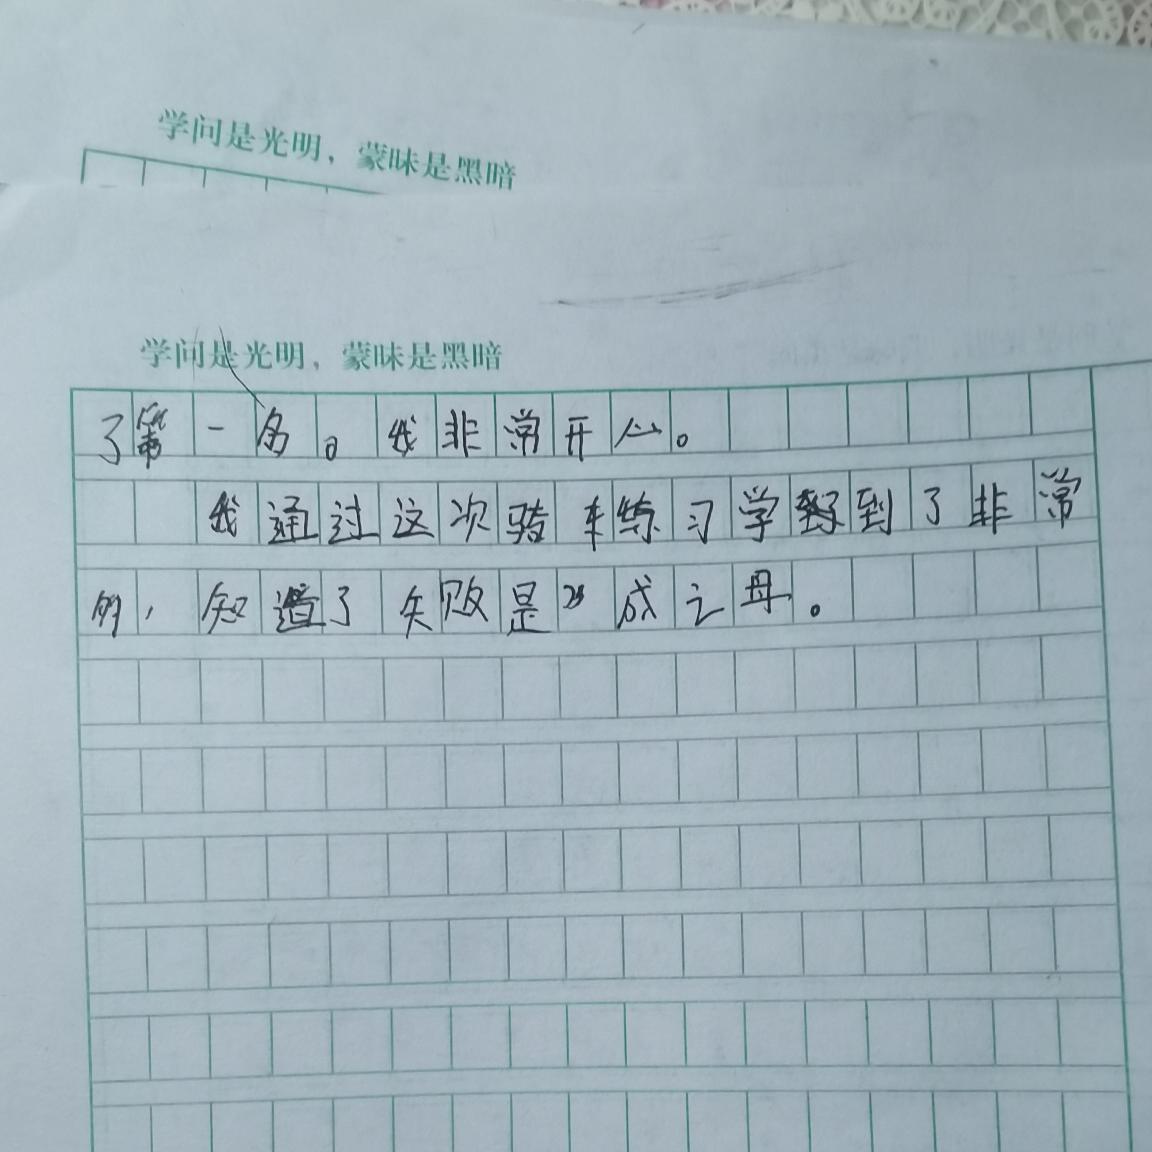 学问是光明，蒙昧是黑暗
学问是光明，蒙昧是黑暗
了第一名。我非常开心。
我通过这次骑车练习学到了非常
的，知道了失败是成之母。